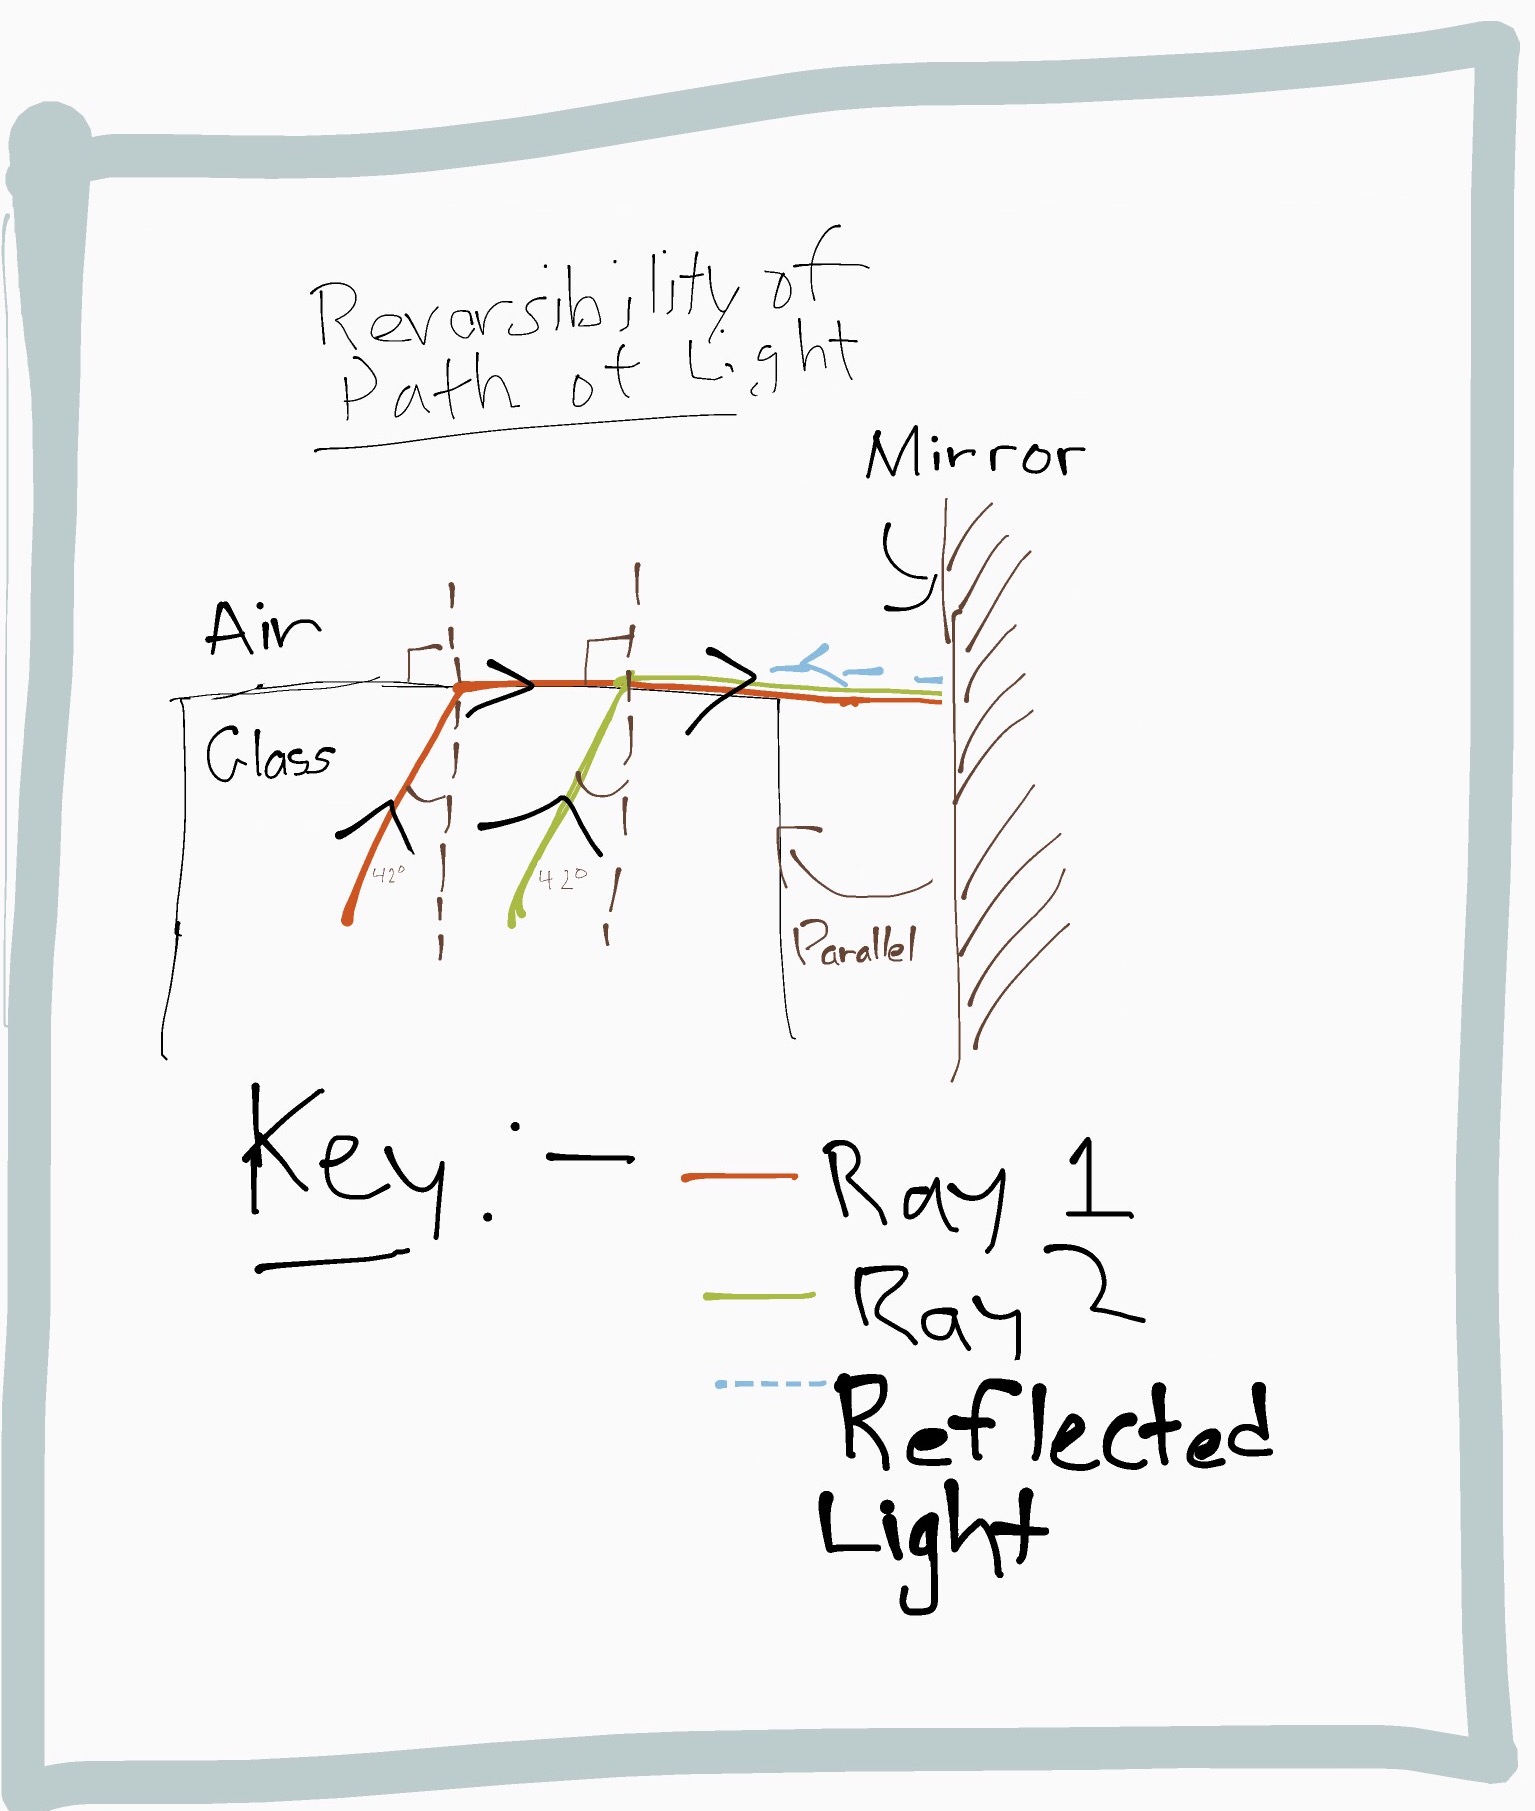 Reversibility of
Path of Light
Mirror
Air
Glass
42°
42°
Parallel
Key :-
Ray 1
Ray 2
Reflected
Light